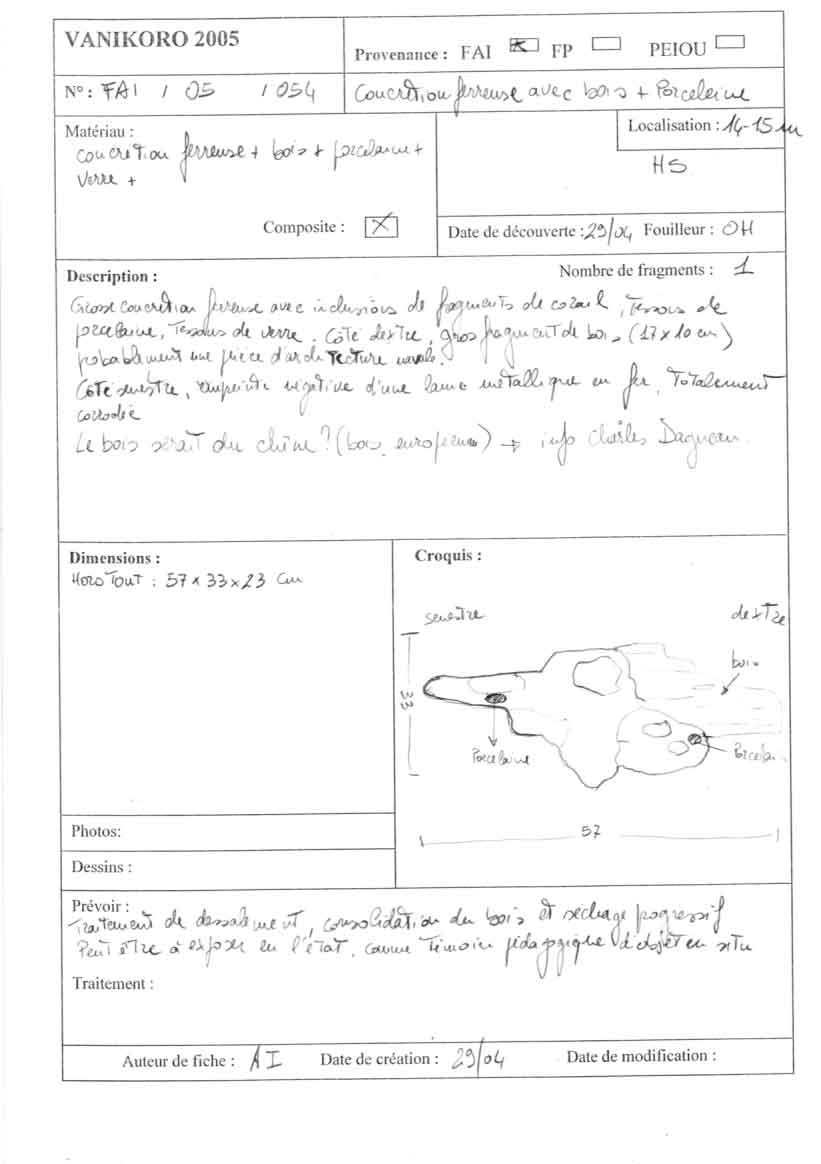 VANIKORO 2005
Provenance : FAI FP PEIOU
N° : FAI / 05 / 054
Concrétion ferreuse avec bois + Porcelaine
Matériau :
concretion ferreuse + bois + porcelaine +
verre +
Composite : X
Localisation : 14-15m
HS
Date de découverte : 29/04 Fouilleur : OH
Description :
Nombre de fragments : 1
Grosse concrétion ferreuse avec inclusions de fragments de corail, Tessons de
porcelaine, Tessons de verre. Côté dextre, gros fragment de bois (17 x 10 cm)
probablement une pièce d'architecture navale.
Côté senestre, empreinte négative d'une lame métallique en fer, Totalement
corrodée
Le bois serait du chêne ? (bois européen) → info Charles
Dimensions :
Hors Tout : 57 x 33 x 23 cm
Croquis :
senestre
dextre
bois
33
Porcelaine
Porcelai
57
Photos:
Dessins :
Prévoir :
Traitement de dessalement, consolidation du bois et sechage progressif
Peut être à exposer en l'état, comme Témoin pédagogique d'objet en situ
Traitement :
Auteur de fiche : AI Date de création : 29/04 Date de modification :